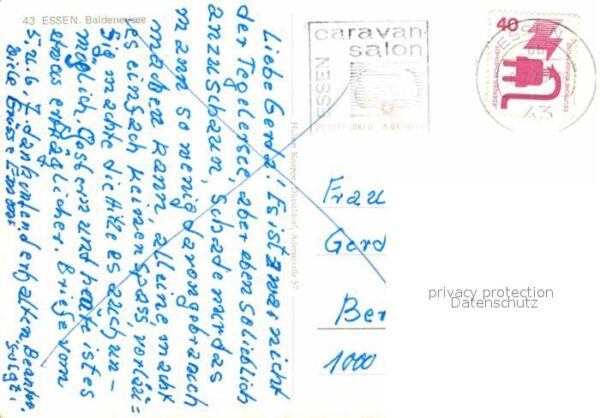 43 ESSEN. Baldeneysee
Liebe Gerda! Es ist zwar nicht
der Tegelersee, aber eben so lieblich
anzuschaun, Schade nur das
man so wenig davon gebrauch
machen kann, alleine macht
es einfach keinen Spass, vorläu=
fig machte die Hitze es auch un-
möglich. Gestern und heute ist es
etwas erträglicher. Briefe vom
5. u. 6. 7. dankend erhalten, Beantw.
folgt.
Viele Grüsse Emmi
caravan-
salon
ESSEN
40
43
Frau
Gerd
Ber
1000
privacy protection
Datenschutz